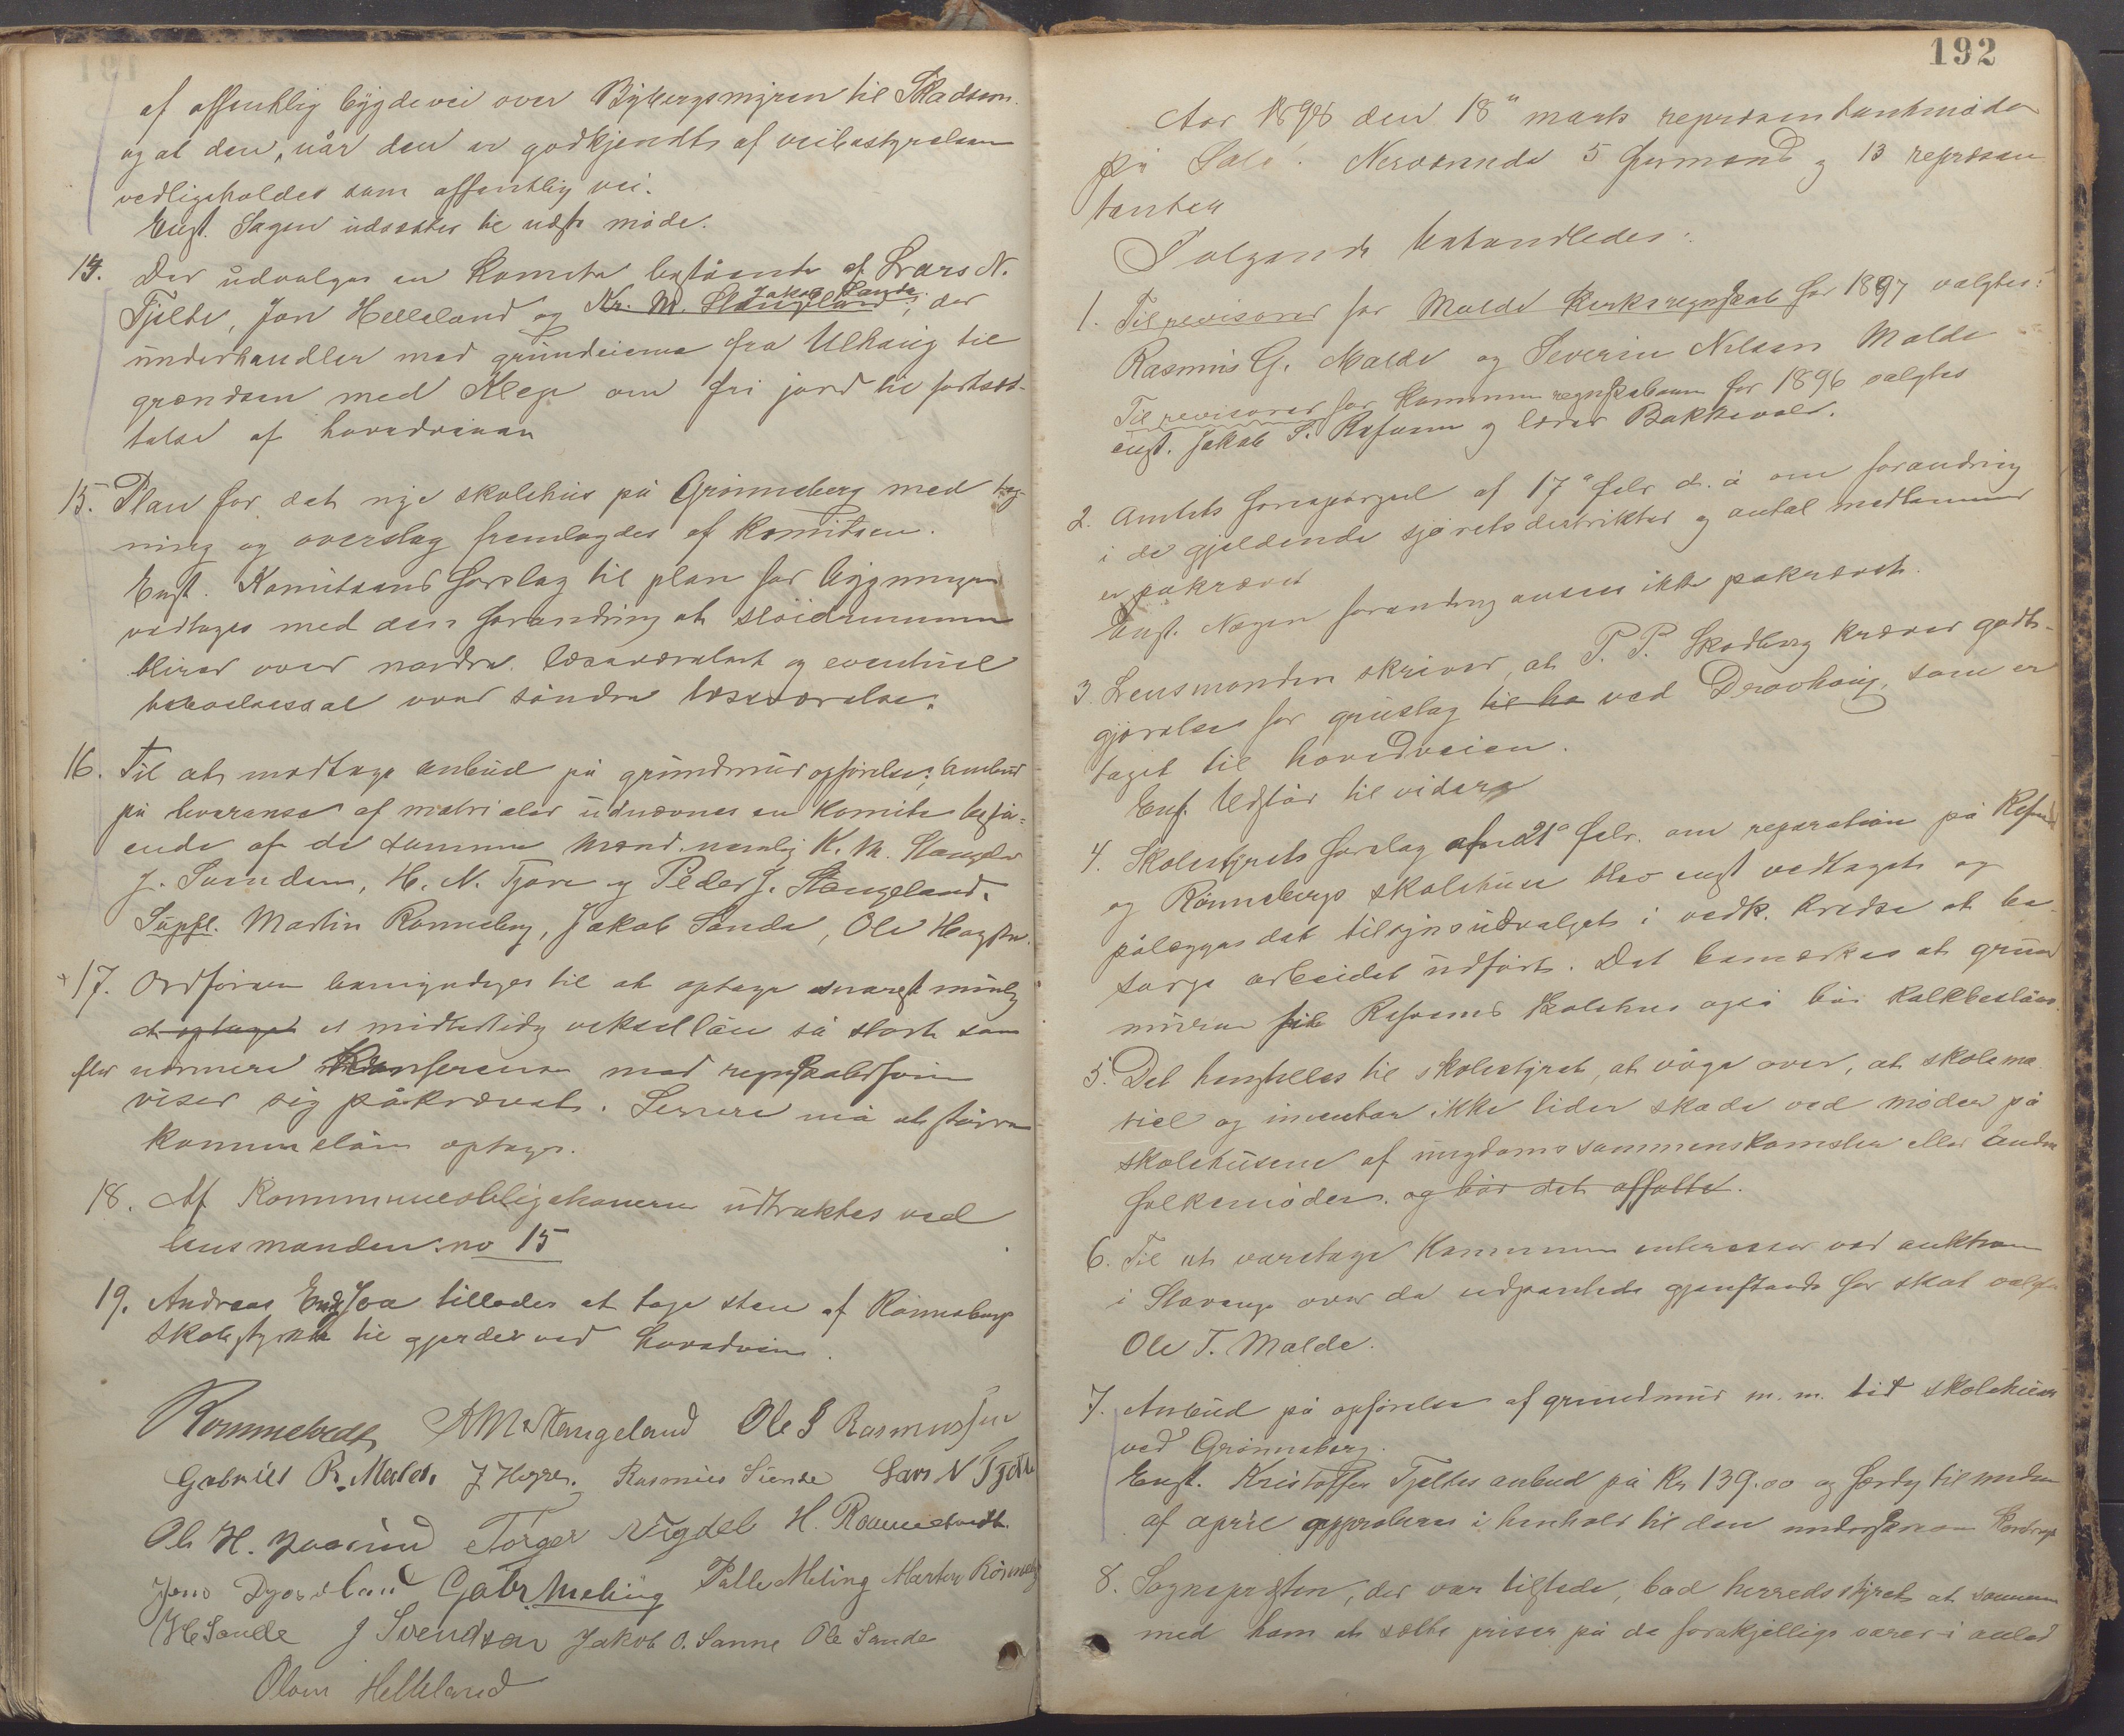 af offentlig bygdevei over Bybergsmyren til Skadsem.
og at den, når den er godkjendt af veibestyrelsen
vedligeholdes som offentlig vei.
Enst. Sagen udsættes til næste møde.
14. Der udvalges en komite bestående af Lars N.
Jakob Sande
Tjelte, Jon Helleland og Kr. M. Stangeland, der
underhandler med grundeierne fra Ulhaug til
grændsen med Klep om fri jord til fortsæt-
telse af hovedveien
15. Plan for det nye skolehus på Grønneberg med teg-
ning og overslag fremlagdes af komiteen.
Enst. Komiteens forslag til plan for bygningen
vedtages med den forandring at sløidrummet
bliver over nordre læseværelset og eventuel
beboelsessal over søndre læseværelse.
16. Til at modtage anbud på grundmurs opførelse; anbud
på leveranse af matrialer udnævnes en komite bestå-
ende af de samme mænd. nemlig K. M. Stangeland
J. Svendsen, H. N. Tjora og Peder J. Stangeland.
Suppl. Martin Rønneberg, Jakob Sande, Ole Hagstu.
17. Ordføreren bemyndiges til at optage snarest mulig
at optaget et midlertidig veksellån så stort som
efter nærmere konferense med regnskabsfører
viser sig påkrævet. Senere må et større
kommunelån optages.
18. Af kommuneobligationerne udtraktes ved
lensmanden no 15
19. Andreas Joa tillades at tage sten af Rønneberg
skolestykke til gjerder ved hovedveien.
Rommetvedt KM Stangeland Ole S Rasmussen
Gabriel R. Malde J Hogre. Rasmus Sunde Lars N Tjelte
Ole H. Torger Nigdel H. Rommetvedt.
Jens Dysjeland Gabr Meling Palle Meling Martin Rønneberg
H Sande J Svendsen Jakob O. Sanne Ole Sande
Olaus Helleland
192
Aar 1898 den 18de marts repræsentantmøde
på Sole. Nærværende 5 formænd og 13 repræsen
tanter
Følgende behandledes:
1. Til revisorer for Malde kirkeregnskab for 1897 valgtes:
Rasmus G. Malde og Severin Nilsen Malde
Til revisorer for kommuneregnskaberne for 1896 valgtes
enst. Jakob S. Ræfsnes og lærer Bakkevold.
2. Amtets forespørgsel af 17de febr. d. å om forandring
i de gjældende sjøretsdistrikter og antal medlemmer
er påkrævet
Enst. Nogen forandring ansees ikke påkrævet.
3. Lensmanden skriver, at P. P. Skadberg kræver godt-
gjørelse for grustag til ho ved Dravhaug, som er
taget til hovedveien.
Enst. Udstår til videre
4. Skolestyrets forslag af 21de febr. om reparation på Ræfsnes
og Rønnebergs skolehuse blev enst vedtaget og
pålægges det tilsynsudvalget i vedk. kredse at be-
sørge arbeidet udført. Det bemærkes at grund
muren til Ræfsnes skolehus også bør kalkbeslåes.
5. Det henstilles til skolestyret, at våge over, at skolema
riel og inventar ikke lider skade ved møder på
skolehusene af ungdomssammenkomster eller andre
folkemøder. og bør det affattet.
6. Til at varetage kommunens interesser ved auktion
i Stavanger over de udpantede gjenstande for skat valgtes
Ole T. Malde.
7. Anbud på opførelse af grundmur m. m. til skolehuset
ved Grønneberg.
Enst. Kristoffer Tjeltes anbud på Kr 139.00 og færdig til enden
af april approberes i henhold til den underskrevne kontrakt
8. Sognepresten, der var tilstede, bad herredsstyret at sammen
med ham at sætte priser på de forskjellige varer i anled